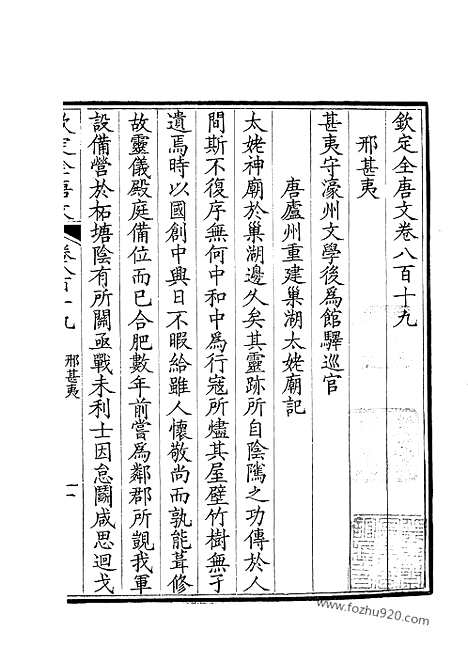 欽定全唐文卷八百十九
邢甚夷
甚夷守濠州文學後爲館驛巡官
唐廬州重建巢湖太姥廟記
太姥神廟於巢湖邊久矣其靈跡所自陰隲之功傳於人
間斯不復序無何中和中爲行寇所燼其屋壁竹樹無孑
遺焉時以國創中興日不暇給雖人懷敬尚而孰能葺修
故靈儀殿庭備位而已合肥數年前嘗爲鄰郡所覬我軍
設備營於柘塘陰有所關亟戰未利士因怠鬬咸思迴戈
欽定全唐文
卷八百十九 邢甚夷
一
www.fozhu920.com